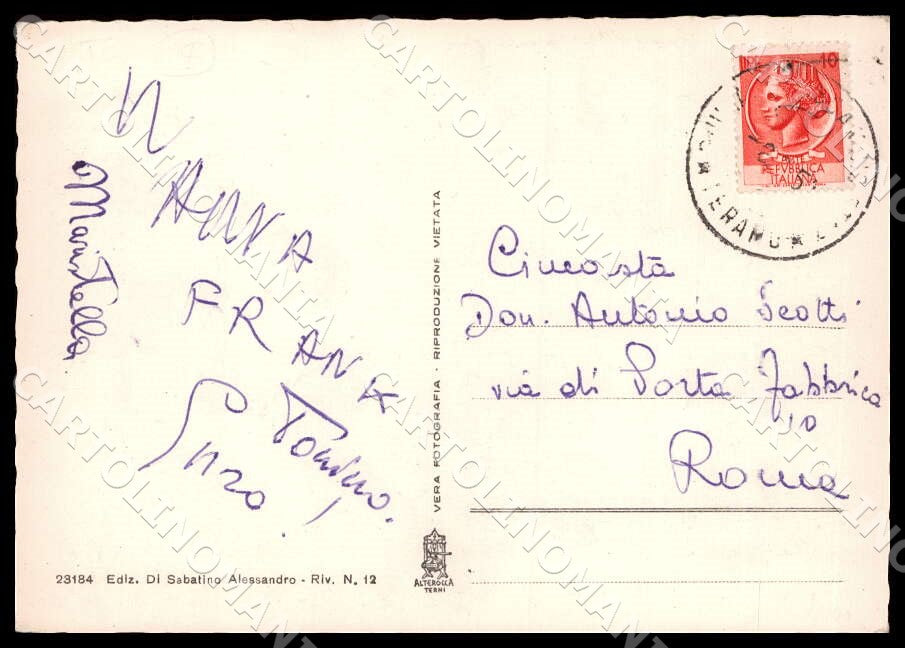 W
ANNA
FRANK
Maristella
Enzo
VERA FOTOGRAFIA - RIPRODUZIONE VIETATA
10
REPUBBLICA
ITALIANA
TERAMO
Don. Antonio Scotti
via di Porta Fabbrica
10
Roma
23184 Ediz. Di Sabatino Alessandro - Riv. N. 12
ALTEROCCA
TERNI
CARTOLINOMANIA